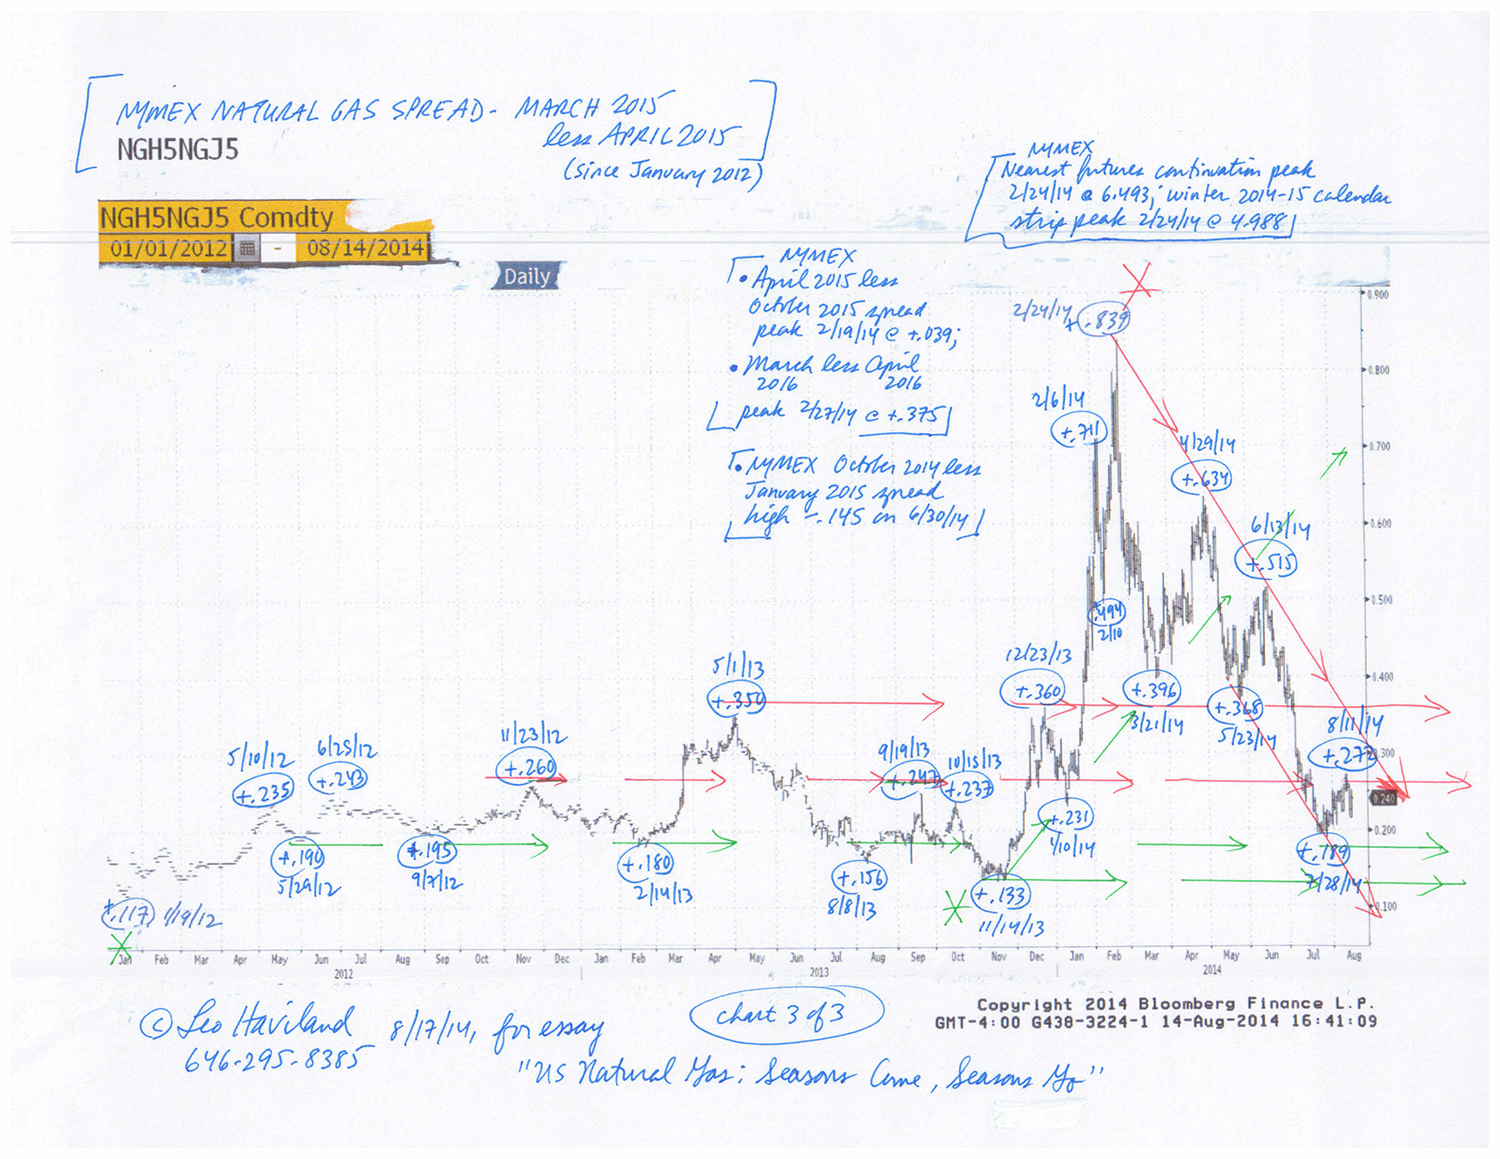 NYMEX NATURAL GAS SPREAD - MARCH 2015
less APRIL 2015
(since January 2012)
NGH5NGJ5
NGH5NGJ5 Comdty
01/01/2012 - 08/14/2014
Daily
NYMEX
Nearest futures continuation peak
2/24/14 @ 6.493; winter 2014-15 calendar
strip peak 2/24/14 @ 4.988
NYMEX
• April 2015 less
October 2015 spread
peak 2/19/14 @ +.039;
• March less April
2016 2016
peak 2/27/14 @ +.375
• NYMEX October 2014 less
January 2015 spread
high -.145 on 6/30/14
2/24/14
+.839
2/6/14
+.711
4/29/14
+.634
6/13/14
+.515
.494
2/10
12/23/13
+.360
+.396
3/21/14
+.368
5/23/14
8/11/14
+.272
5/1/13
+.350
11/23/12
+.260
6/25/12
+.243
5/10/12
+.235
9/19/13
+.247
10/15/13
+.237
+.231
1/10/14
+.190
5/29/12
+.195
9/7/12
+.180
2/14/13
+.156
8/8/13
+.133
11/14/13
+.189
7/28/14
+.117 1/19/12
0.900
0.800
0.700
0.600
0.500
0.400
0.300
0.240
0.200
0.100
Jan Feb Mar Apr May Jun Jul Aug Sep Oct Nov Dec Jan Feb Mar Apr May Jun Jul Aug Sep Oct Nov Dec Jan Feb Mar Apr May Jun Jul Aug
2012 2013 2014
Copyright 2014 Bloomberg Finance L.P.
GMT-4:00 G438-3224-1 14-Aug-2014 16:41:09
chart 3 of 3
© Leo Haviland 8/17/14, for essay
646-295-8385
"US Natural Gas: Seasons Come, Seasons Go"